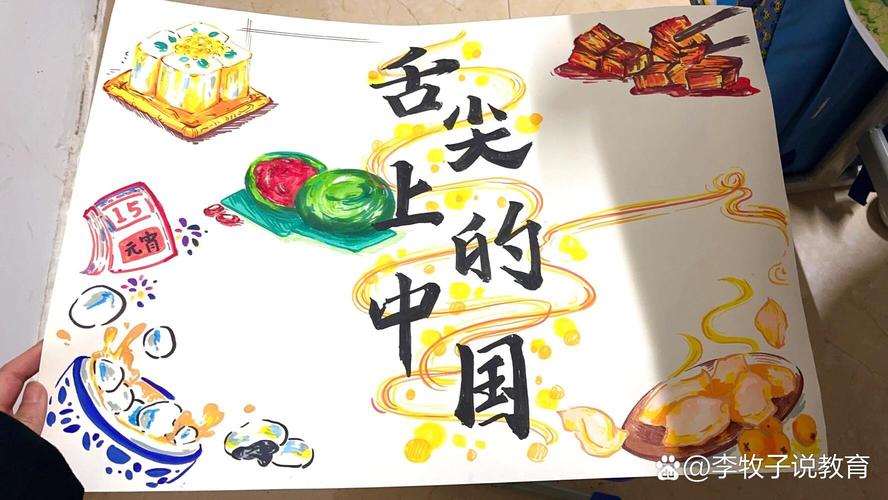 舌尖上的中国
15
元宵
@李牧子说教育